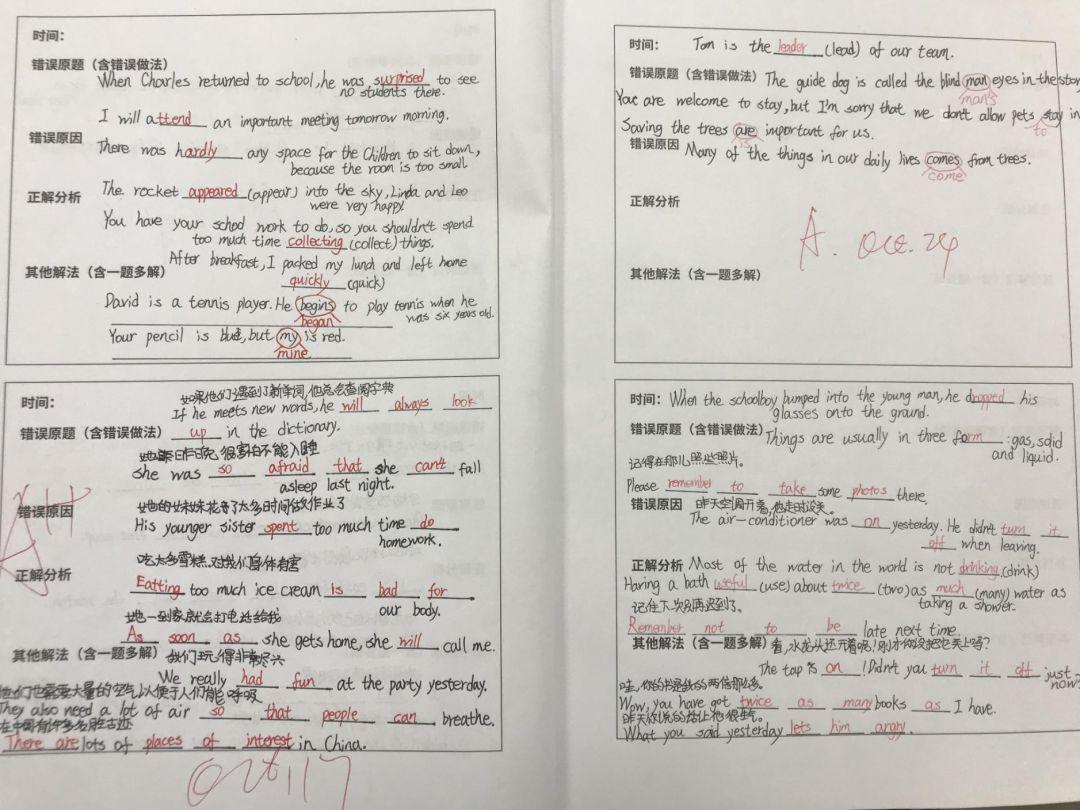 时间：
错误原题（含错误做法）
When Charles returned to school, he was surprised to see
no students there.
I will attend an important meeting tomorrow morning.
错误原因
There was hardly any space for the Children to sit down,
because the room is too small
正解分析
The rocket appeared (appear) into the sky, Linda and Leo
were very happy.
You have your school work to do, so you shouldn't spend
too much time collecting (collect) things.
其他解法（含一题多解）
After breakfast, I packed my lunch and left home
quickly (quick)
David is a tennis player. He begins to play tennis when he
was six years old.
began
Your pencil is blue, but my is red.
mine
时间：
Tom is the leader (lead) of our team.
错误原题（含错误做法）
The guide dog is called the blind man eyes in the stor
man's
You are welcome to stay, but I'm sorry that we don't allow pets stay in
to
Saving the trees are important for us.
is
错误原因
Many of the things in our daily lives comes from trees.
come
正解分析
A. Oct. 24
其他解法（含一题多解）
时间：
如果他们遇到了新单词，他总会查阅字典
If he meets new words, he will always look
错误原题（含错误做法）
up in the dictionary.
她昨日昨晚很害怕不能入睡
she was so afraid that she can't fall
asleep last night.
错误原因
她的妹妹花了太多时间做作业了
His younger sister spent too much time do
homework.
正解分析
吃太多雪糕对我们身体有害
Eatting too much ice cream is bad for
our body.
她一到家就会打电话给我
As soon as she gets home, she will call me.
其他解法（含一题多解）
我们玩得非常尽兴
We really had fun at the party yesterday.
他们也需要大量的空气以便于人们能呼吸
They also need a lot of air so that people can breathe.
在中国有许多名胜古迹
There are lots of places of interest in China.
Oct 17
时间：
When the schoolboy bumped into the young man, he dropped his
glasses onto the ground.
错误原题（含错误做法）
Things are usually in three form : gas, solid
and liquid.
记得在那儿照些照片。
Please remember to take some photos there.
错误原因
昨天空调开着，他走时没关。
The air-conditioner was on yesterday. He didn't turn it
off when leaving.
正解分析
Most of the water in the world is not drinking (drink)
Having a bath useful (use) about twice (two) as much (many) water as
taking a shower.
记住下次别再迟到了。
Remember not to be late next time.
其他解法（含一题多解）
看，水龙头还开着呢！刚才你没把它关上吗？
The tap is on ! Didn't you turn it off just
now?
哇，你的书是我的两倍那么多。
Wow, you have got twice as many books as I have.
昨天你说的话让他很生气。
What you said yesterday lets him angry.